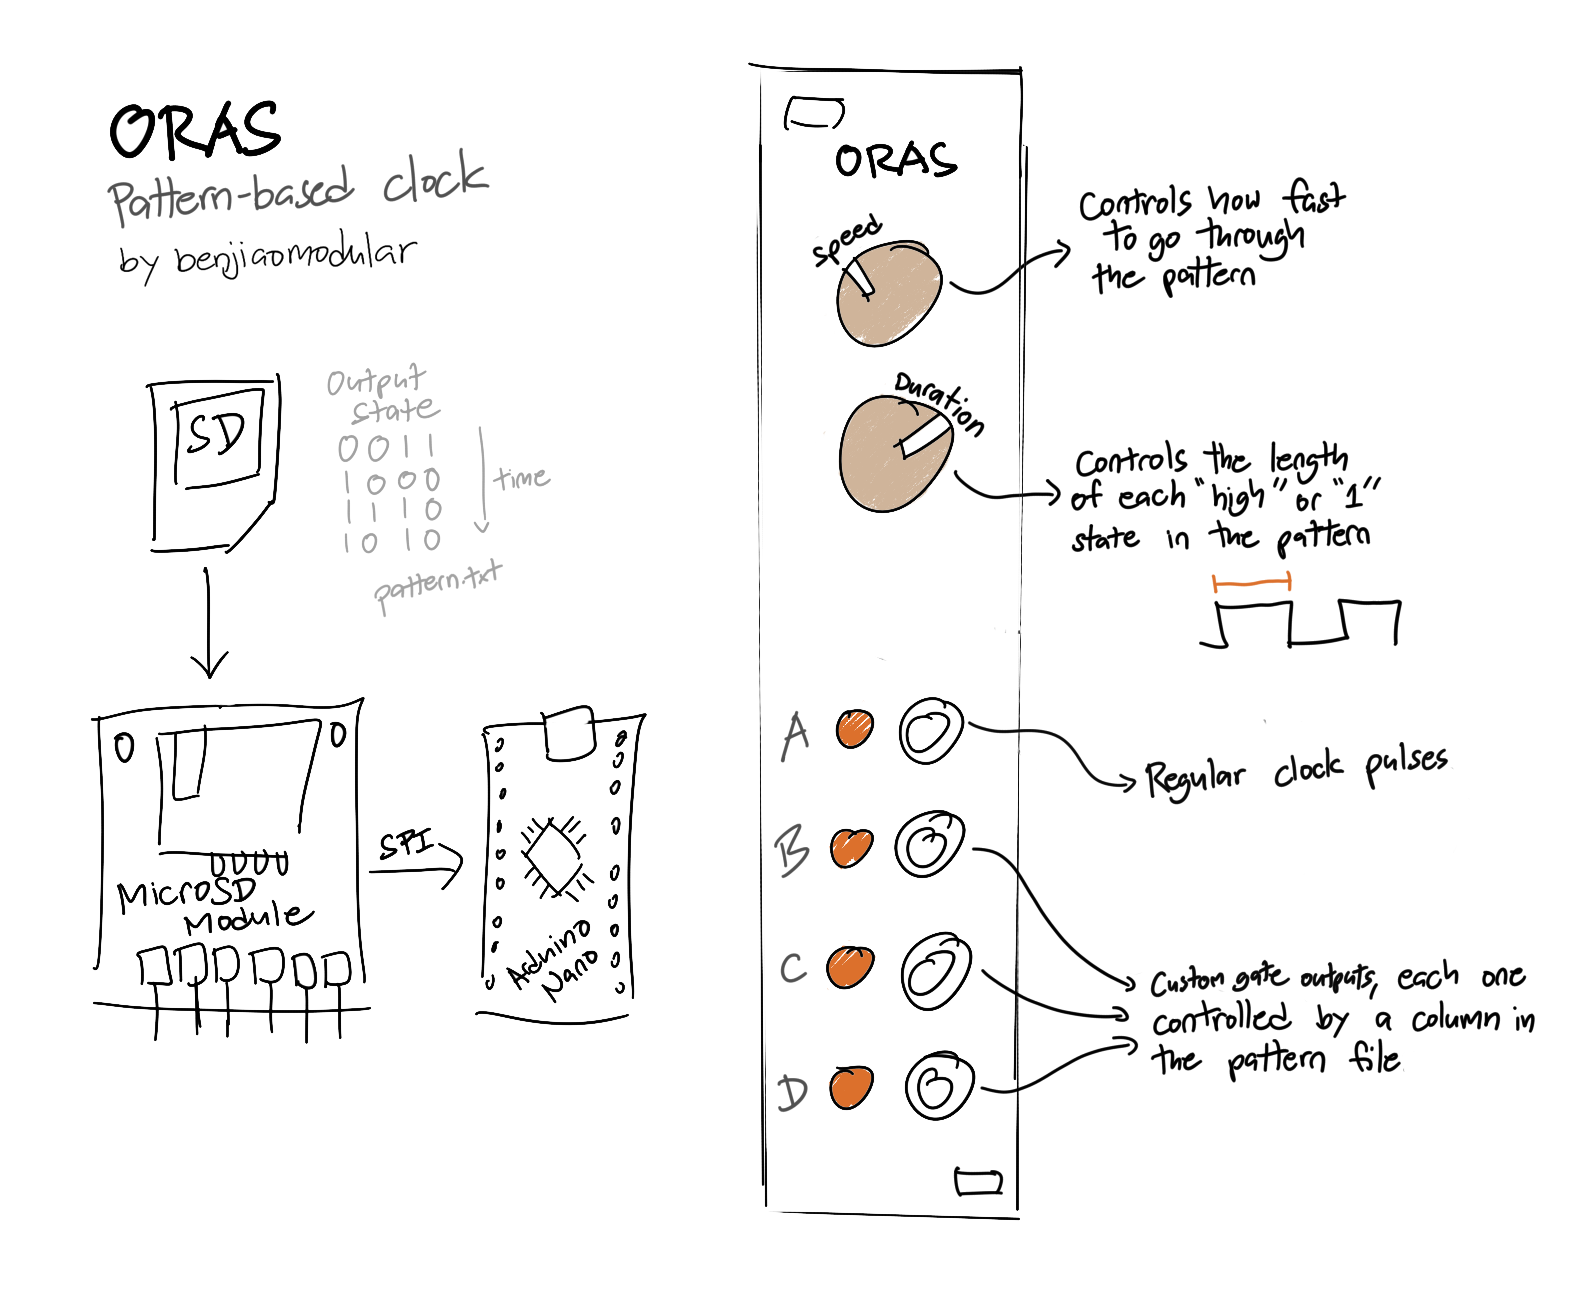 ORAS
Pattern-based clock
by benjiaomodular
SD
Output
state
0 0 1 1
1 0 0 0
1 1 1 0
1 0 1 0
time
pattern.txt
MicroSD
Module
SPI
Arduino
Nano
ORAS
Speed
Duration
A
B
C
D
Controls how fast
to go through
the pattern
Controls the length
of each "high" or "1"
state in the pattern
Regular clock pulses
Custom gate outputs, each one
controlled by a column in
the pattern file